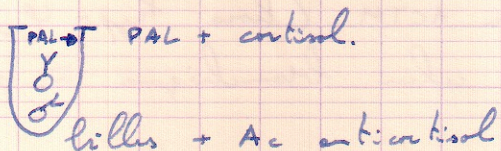 PAL → PAL + cortisol.
billes + Ac anticortisol